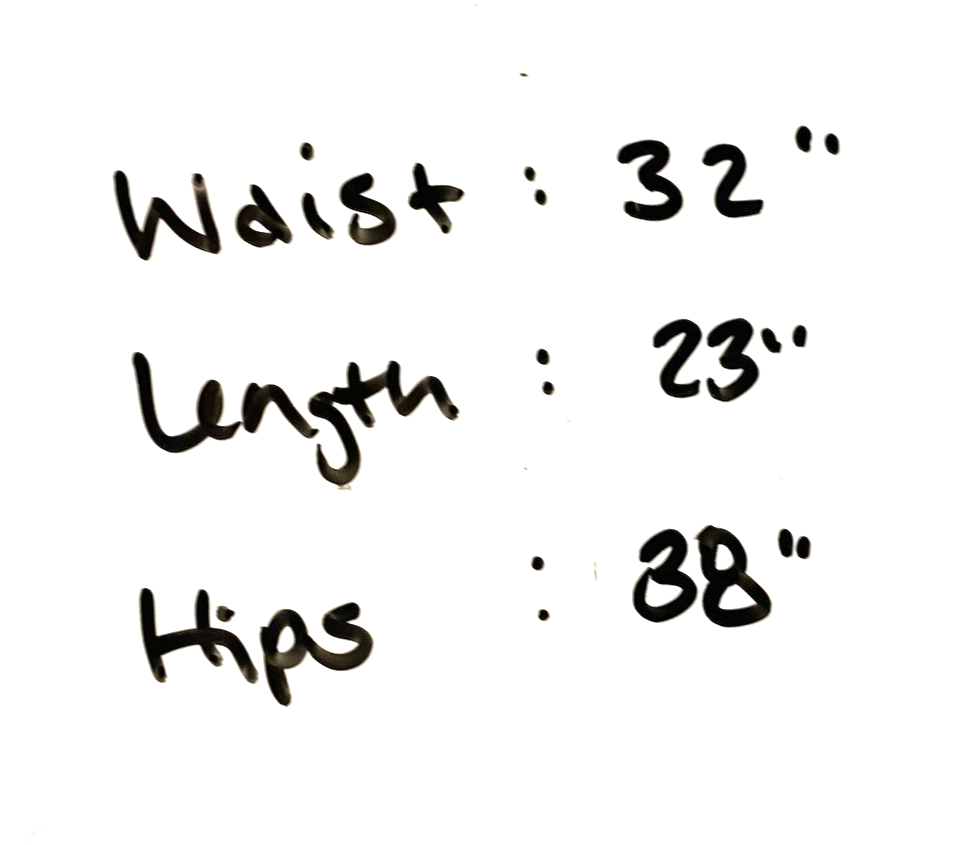 Waist : 32"
Length : 23"
Hips : 38"